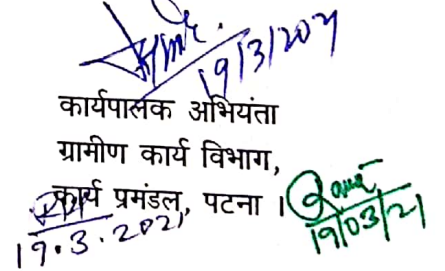 19/3/2021
कार्यपालक अभियंता
ग्रामीण कार्य विभाग,
कार्य प्रमंडल, पटना ।
19.3.2021
19/03/21